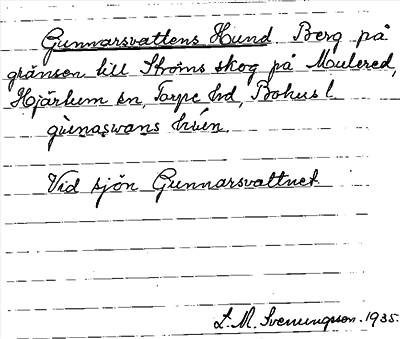 Gunnarsvattens Hund. Berg på
gränsen till Ströms skog på Mulered,
Hjärtum sn, Torpe hd, Bohusl.
gùnaswans húén.
Vid sjön Gunnarsvattnet.
L. M. Svenungsson. 1935.